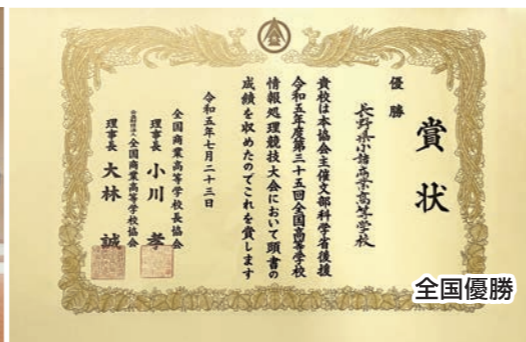 賞状
優勝
長野県小諸商業高等学校
貴校は本協会主催文部科学省後援
令和五年度第三十五回全国高等学校
情報処理競技大会において頭書の
成績を収めたのでこれを賞します
令和五年七月二十三日
全国商業高等学校長協会
理事長 小川 孝
公益財団法人 全国商業高等学校協会
理事長 大林 誠
全国優勝